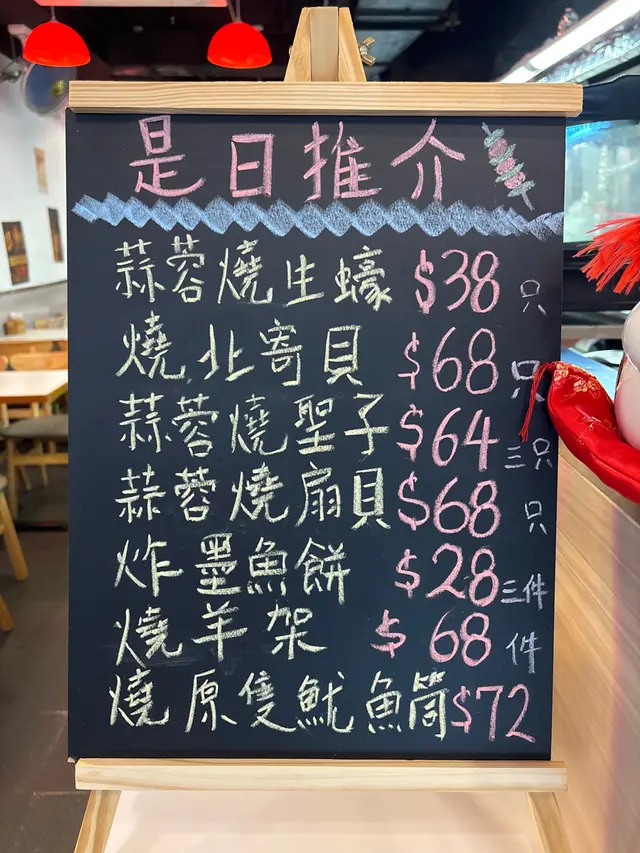 是日推介
蒜蓉燒生蠔 $38 只
燒北寄貝 $68 只
蒜蓉燒聖子 $64 三只
蒜蓉燒扇貝 $68 只
炸墨魚餅 $28 三件
燒羊架 $68 件
燒原隻魷魚筒 $72